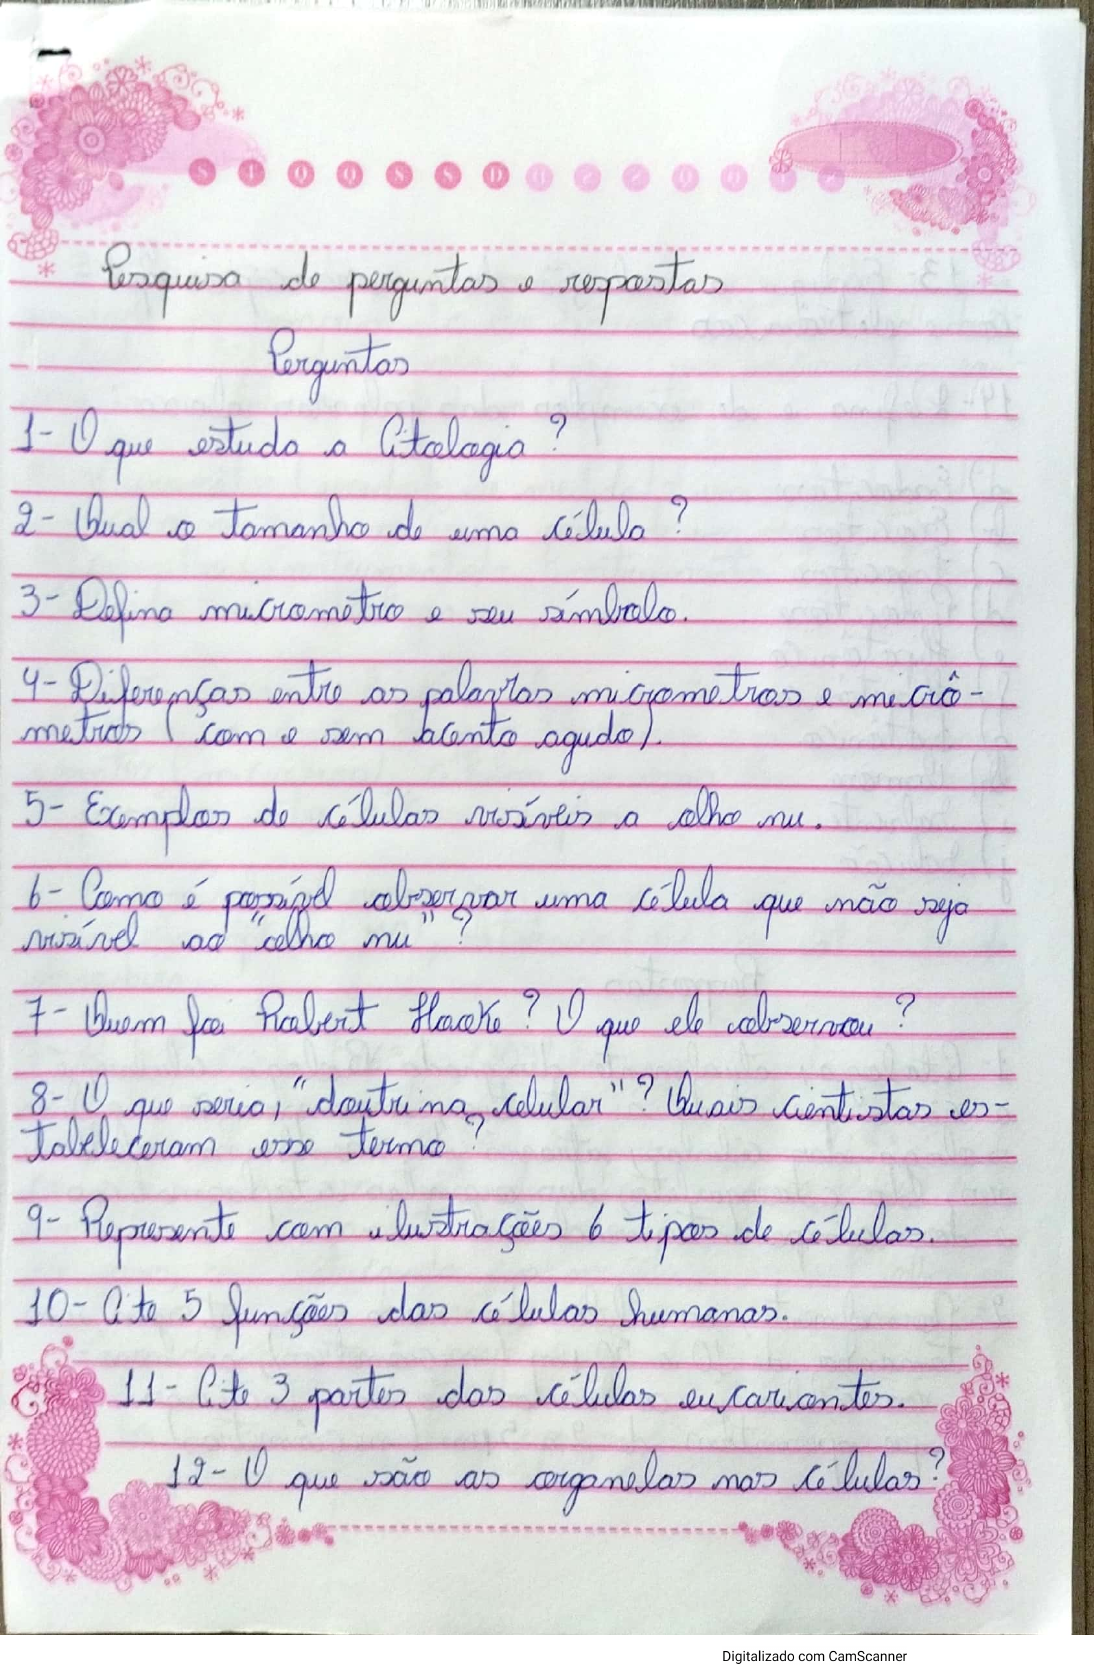 S T Q Q S S D
Pesquisa de perguntas e respostas
Perguntas
1- O que estuda a Citologia?
2- Qual o tamanho de uma célula?
3- Defina micrometro e seu símbolo.
4- Diferenças entre as palavras micrometros e micrô-
metros (com e sem acento agudo).
5- Exemplos de células visíveis a olho nu.
6- Como é possível observar uma célula que não seja
visível ao "olho nu"?
7- Quem foi Robert Hooke? O que ele observou?
8- O que seria, "doutrina celular"? Quais cientistas es-
tabeleceram esse termo?
9- Represente com ilustrações 6 tipos de células.
10- Cite 5 funções das células humanas.
11- Cite 3 partes das células eucariontes.
12- O que são as organelas nas células?
Digitalizado com CamScanner